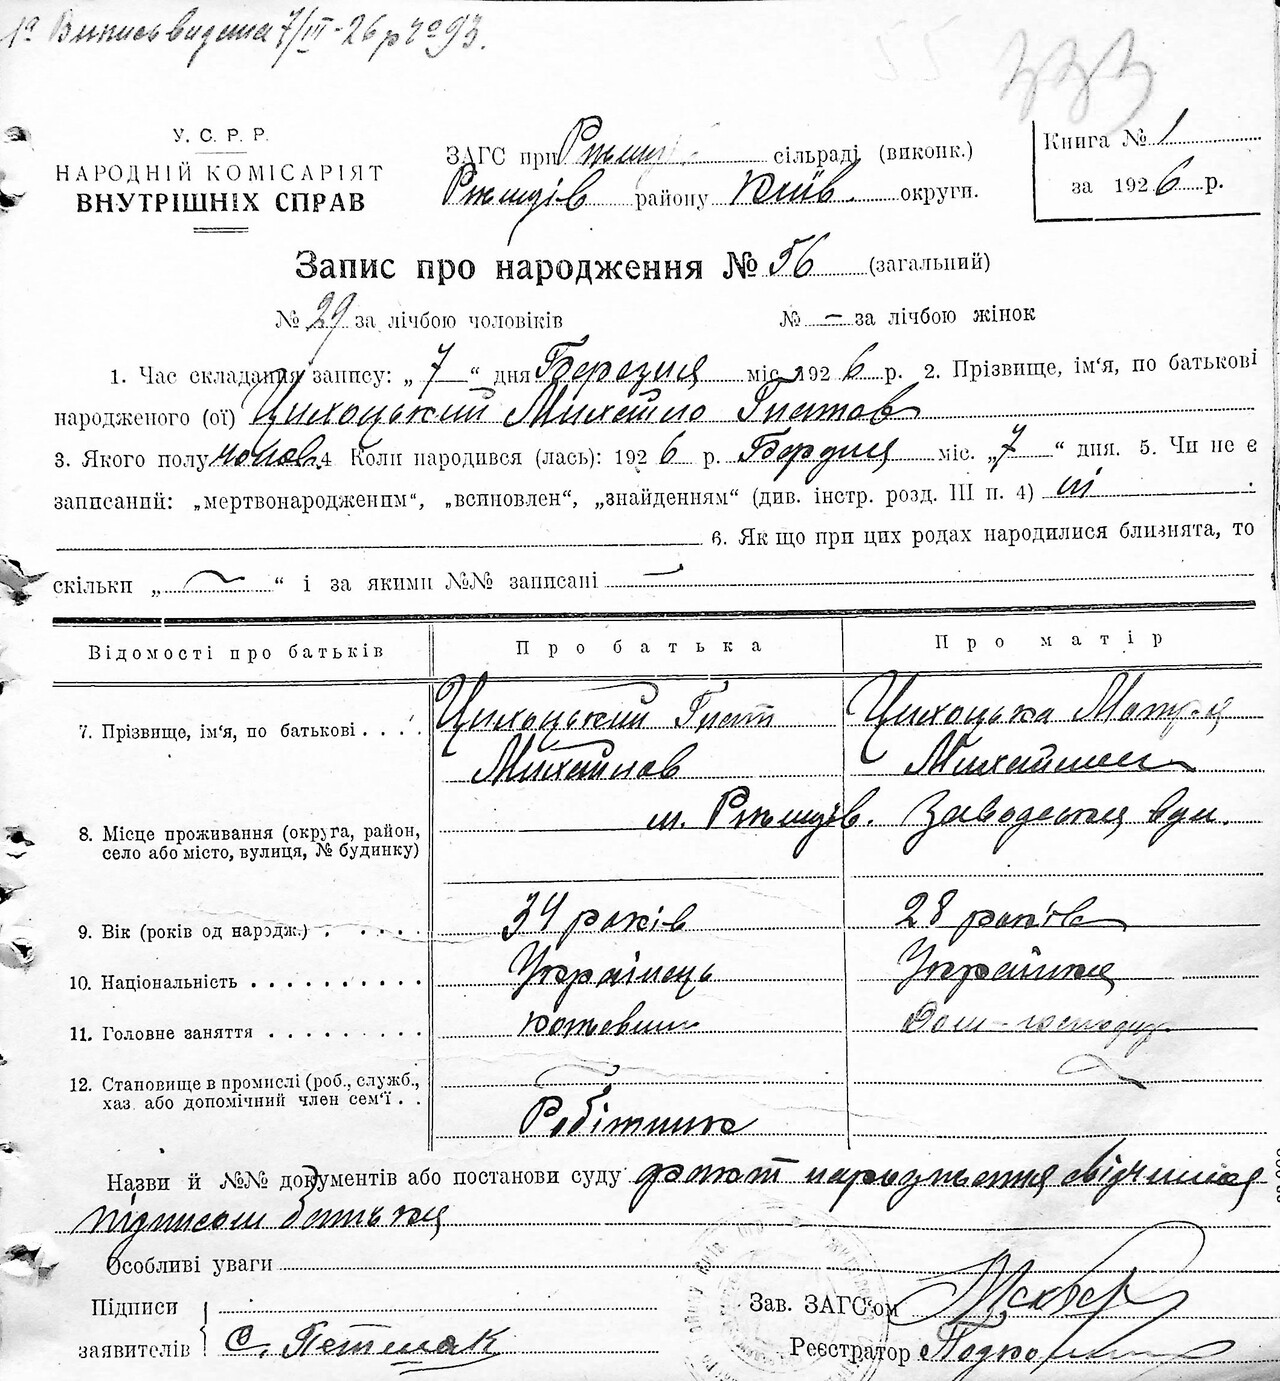 1а Випись видана 7/III-26 р № 93.
55 333
У. С. Р. Р.
НАРОДНІЙ КОМІСАРІЯТ
ВНУТРІШНІХ СПРАВ
ЗАГС при сільраді (виконк.)
Ржищів району Київ. округи.
Книга № 1
за 1926 р.
Запис про народження № 56 (загальний)
№ 29 за лічбою чоловіків № – за лічбою жінок
1. Час складання запису: „7“ дня Березня міс. 1926 р. 2. Прізвище, ім‘я, по батькові
народженого (ої) Цихоцький Михайло Гнатов
3. Якого полу чолов. 4 Коли народився (лась): 1926 р. Березня міс. „7“ дня. 5. Чи не є
записаний: „мертвонародженим“, „всиновлен“, „знайденням“ (див. інстр. розд. III п. 4) ні
6. Як що при цих родах народилися близнята, то
скільки „ — “ і за якими №№ записані —
Відомості про батьків Про батька Про матір
7. Прізвище, ім‘я, по батькові . . . . Цихоцький Гнат Цихоцька Мотря
Михайлов
8. Місце проживання (округа, район, м. Ржищів. Заводська вул.
село або місто, вулиця, № будинку)
9. Вік (років од народж.) . . . . . 34 років 28 років
10. Національність . . . . . . . . . . Українець Українка
11. Головне заняття . . . . . . . . . Дом-господар.
12. Становище в промислі (роб., служб.,
хаз. або допомічний член сем‘ї . . Робітник
Назви й №№ документів або постанови суду факт народження свідчився
підписом батька
Особливі уваги
Підписи
Зав. ЗАГС‘ом
заявителів С.
Реєстратор